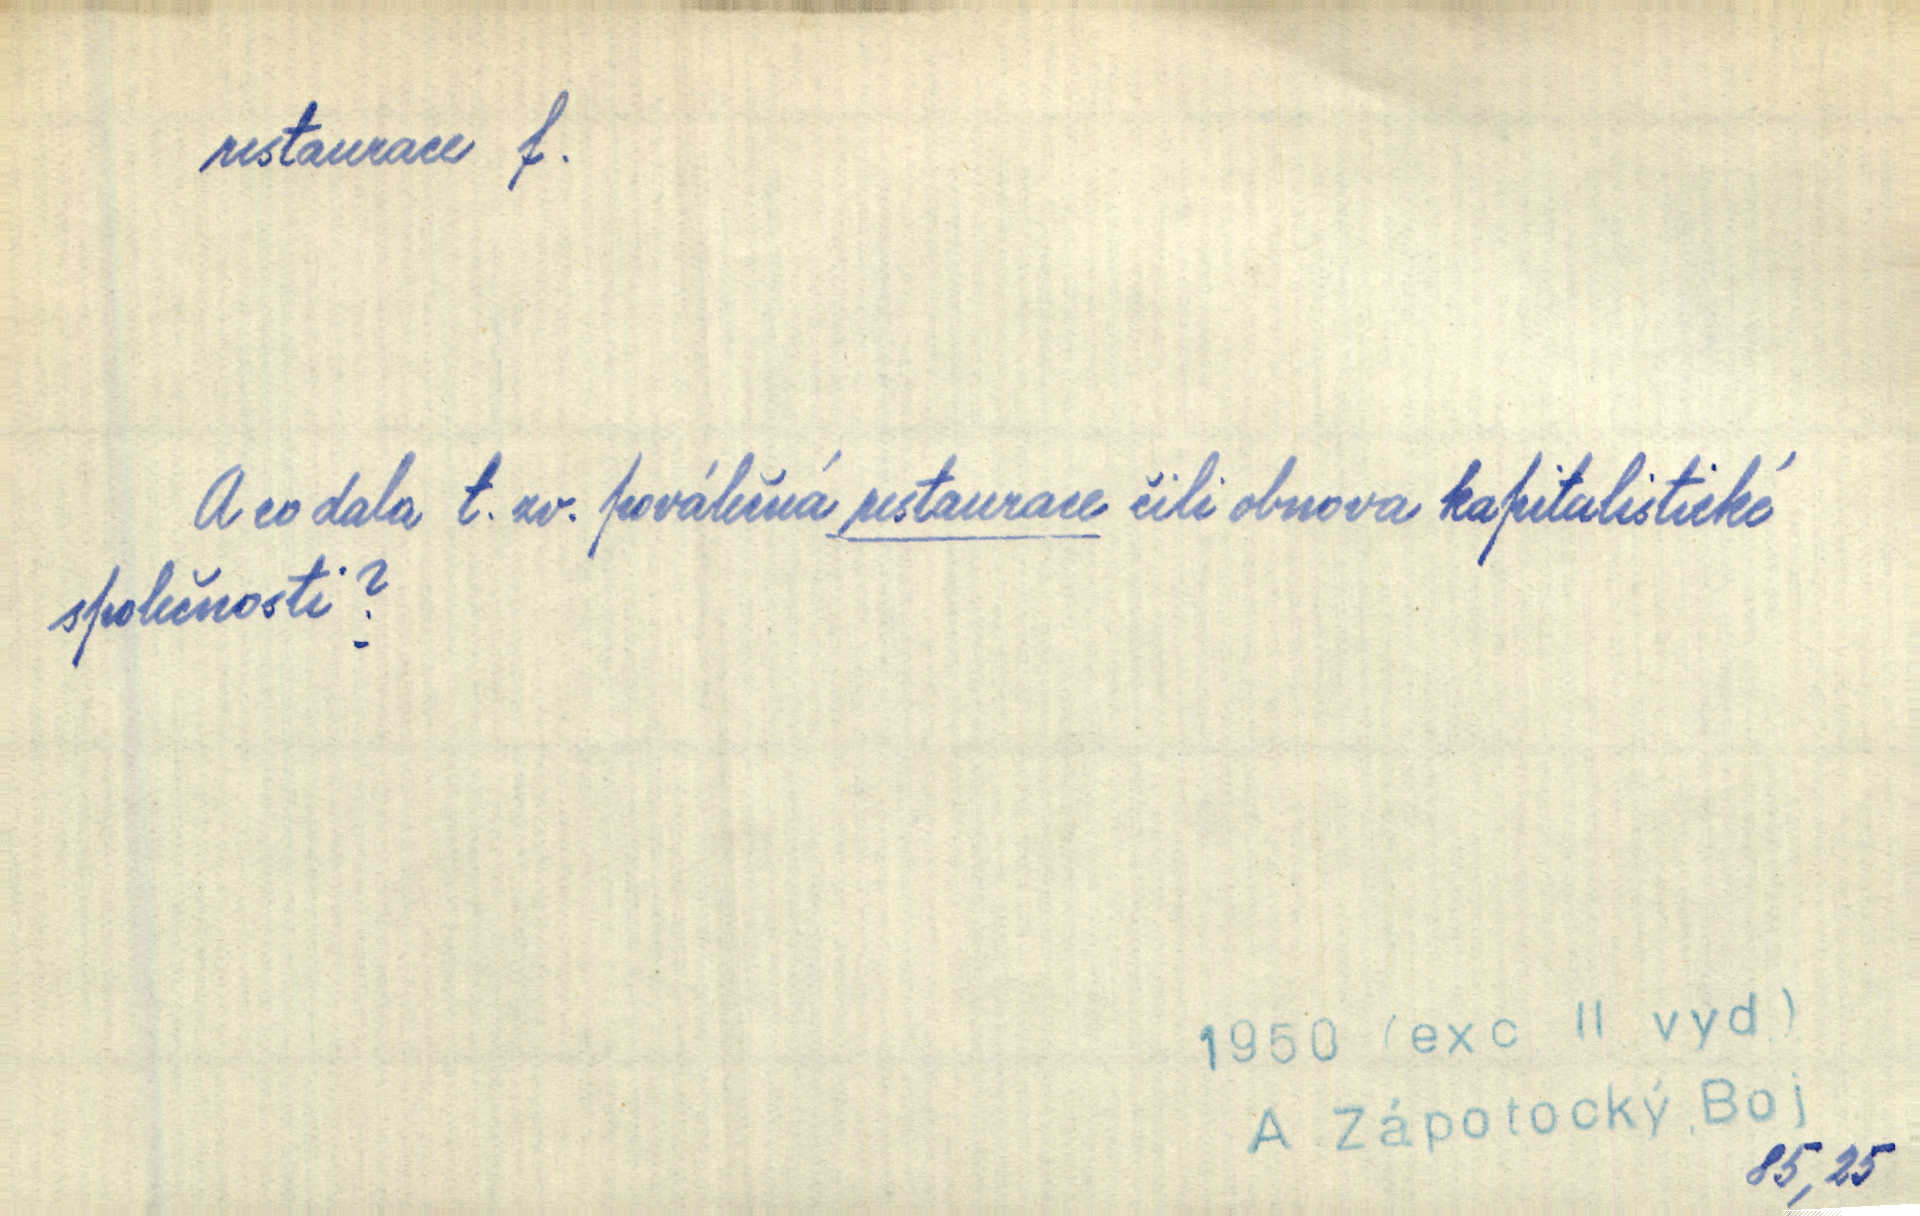 restaurace f.
A co dala t. zv. poválečná restaurace čili obnova kapitalistické
společnosti?
1950 (exc II vyd.)
A Zápotocký, Boj
85,25